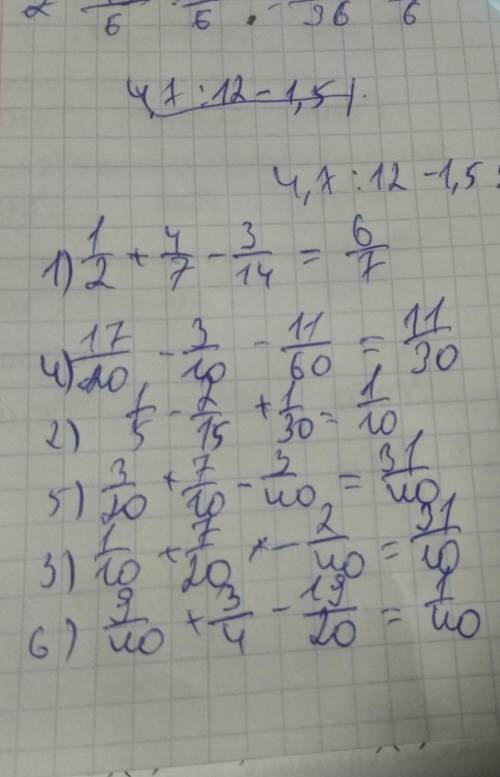 4,7 : 12 - 1,5
4,7 : 12 - 1,5 :
1) 1/2 + 4/7 - 3/14 = 6/7
4) 17/20 - 3/10 - 11/60 = 11/30
2) 1/5 - 2/15 + 1/30 = 1/10
5) 3/20 + 7/10 - 3/40 = 31/40
3) 1/10 + 7/20 - 2/40 = 31/10
6) 9/40 + 3/4 - 19/20 = 1/40